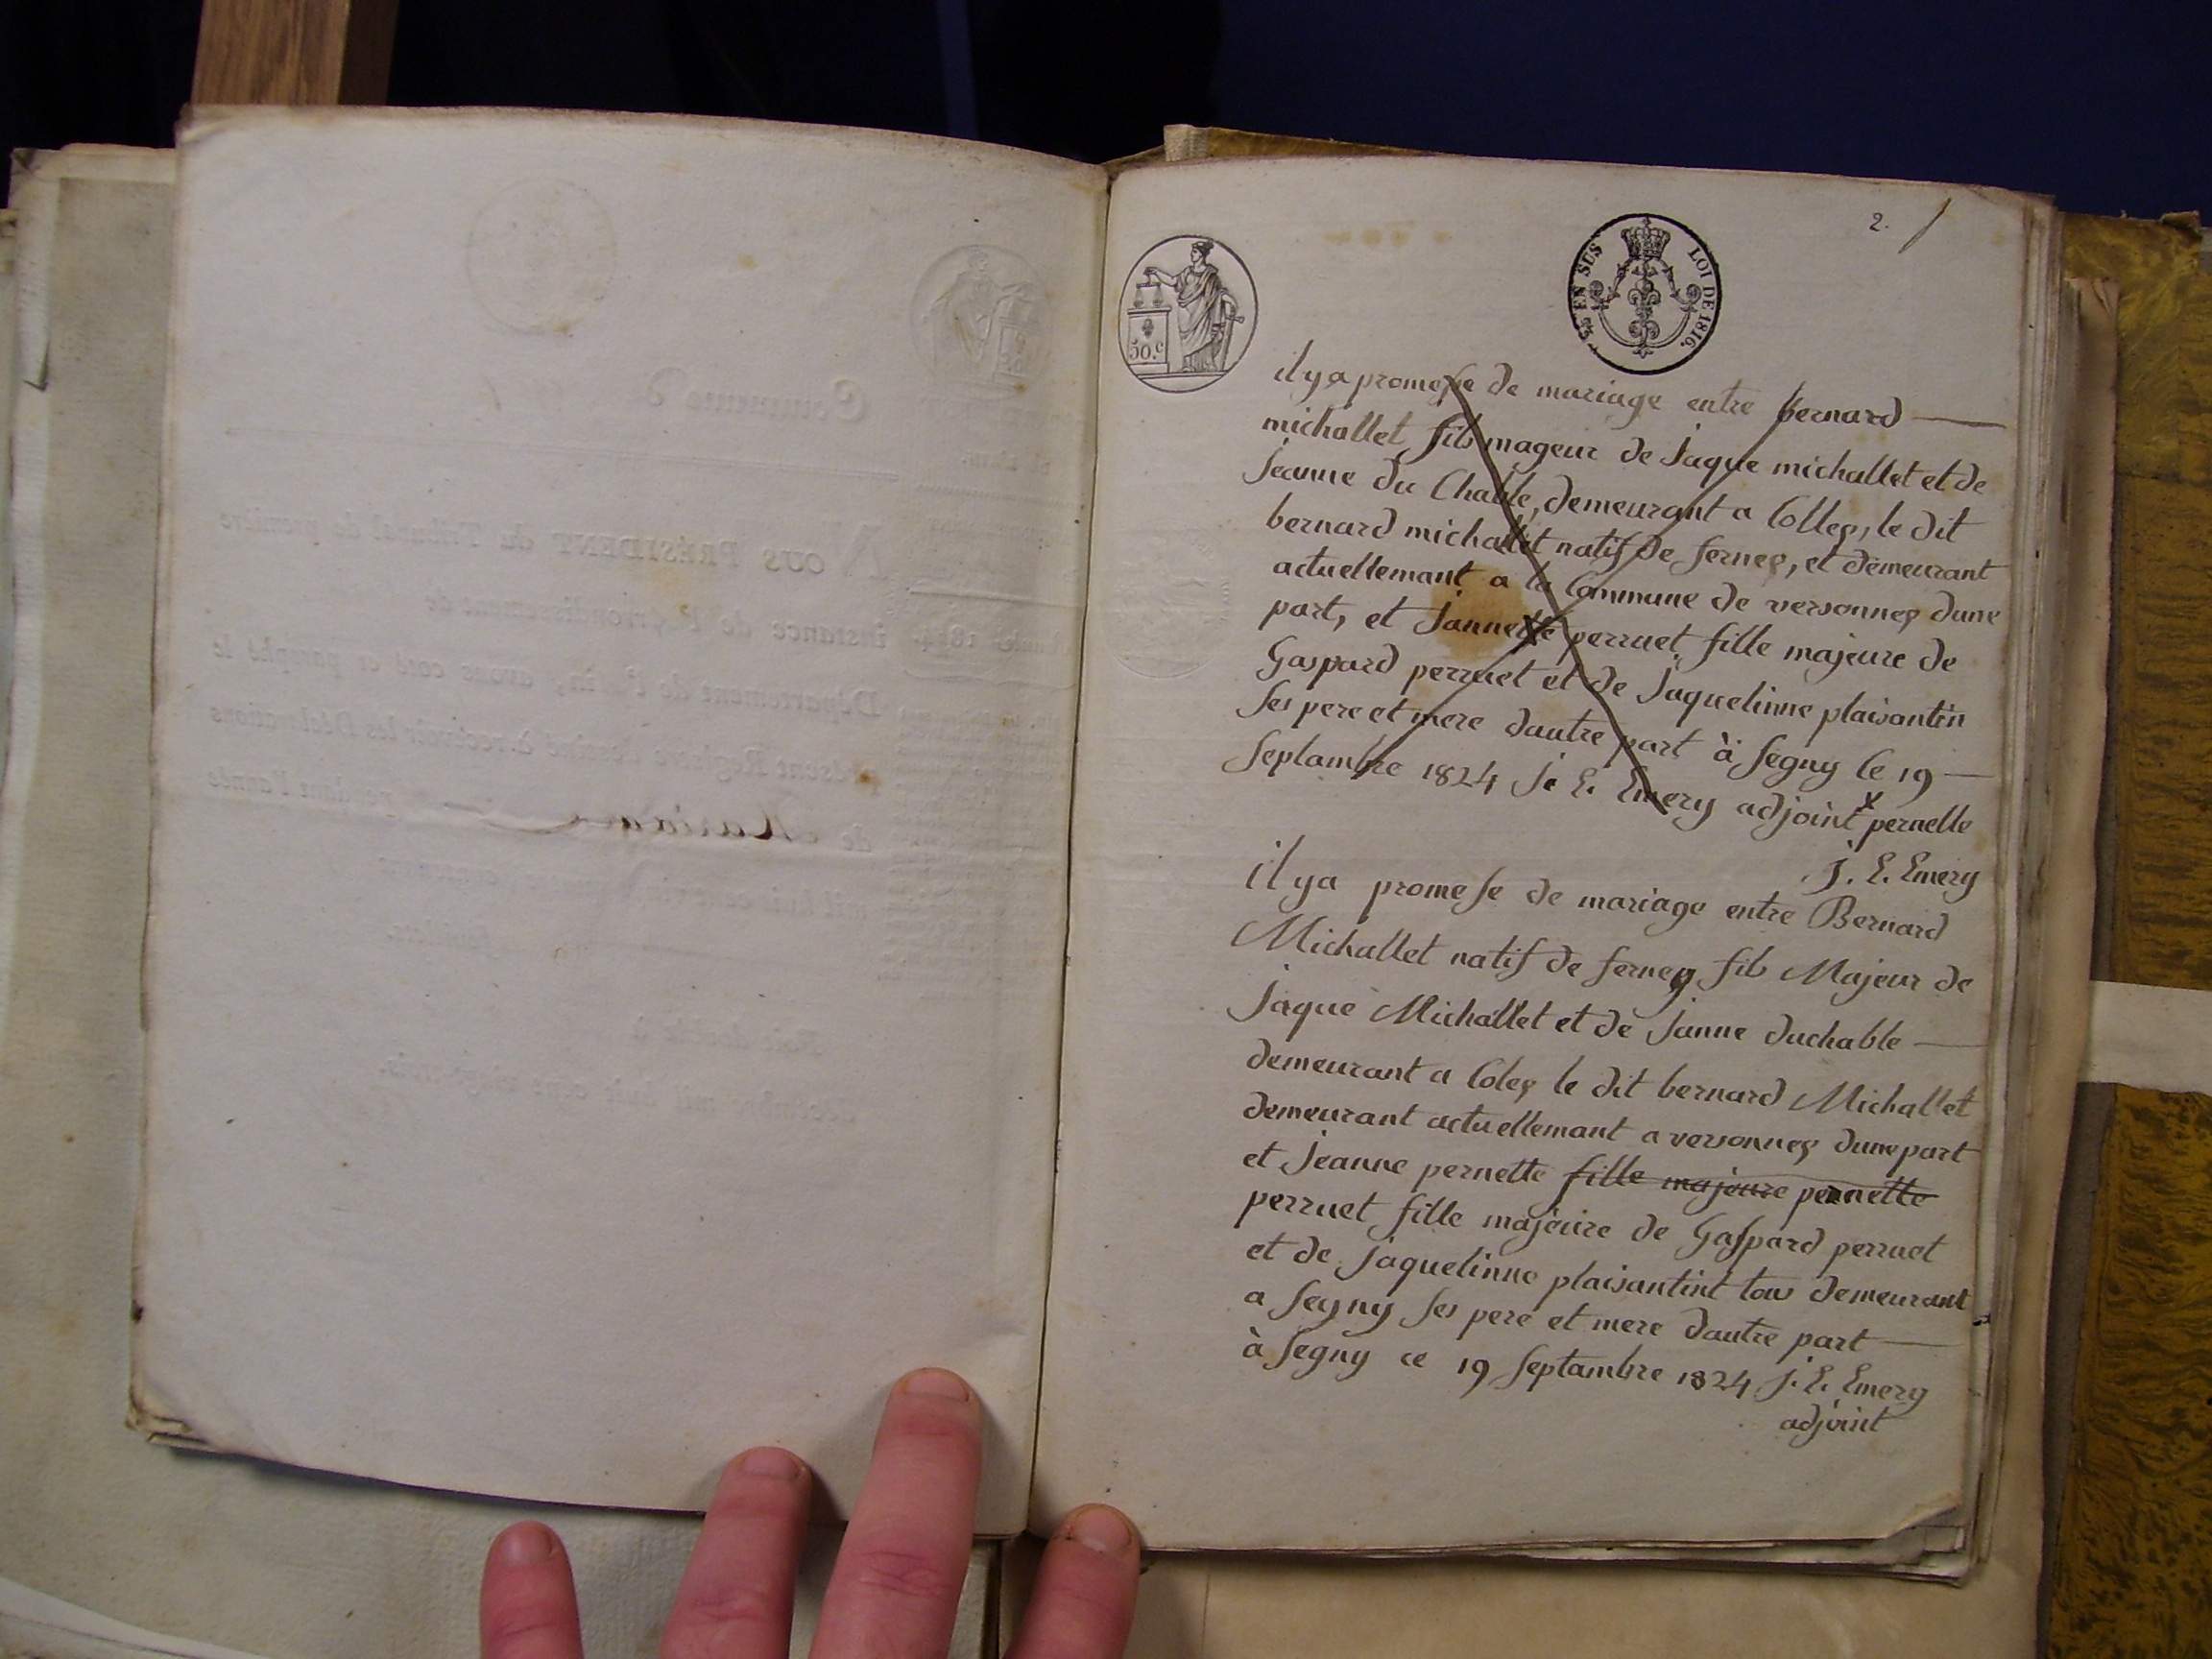 2.
50.c
EN SUS LOI DE 1816.
il y a promesse de mariage entre bernard
michallet fils mageur de Jaque michallet et de
Jeanne du Chable, demeurant a Colley, le dit
bernard michallet natif de ferney, et demeurant
actuellemant a la Commune de versonney dune
part, et Jannette perruet fille majeure de
Gaspard perruet et de Jaquelinne plaisantin
Ses pere et mere dautre part à Segny le 19
Septambre 1824 J. E. Emery adjoint x pernette
J. E. Emery
il y a promese de mariage entre Bernard
Michallet natif de ferney fils Majeur de
Jaque Michallet et de Janne duchable
demeurant a Coley le dit bernard Michallet
demeurant actuellemant a versonney dune part
et Jeanne pernette fille majeure pernette
perruet fille majeure de Gaspard perruet
et de Jaquelinne plaisantint tous demeurant
a Segny Ses pere et mere dautre part
à Segny ce 19 Septambre 1824 J. E. Emery
adjoint